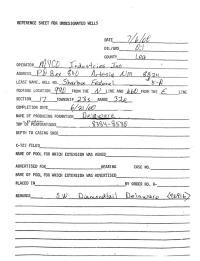 REFERENCE SHEET FOR UNDESIGNATED WELLS
DATE 7/6/00
OIL/GAS Oil
COUNTY Lea
OPERATOR MYCO Industries Inc
ADDRESS PO Box 840 Artesia NM 88211
LEASE NAME, WELL NO. Federal
FOOTAGE LOCATION 990 FROM THE N LINE AND 660 FROM THE E LINE
SECTION 17 TOWNSHIP 23s RANGE 32e
COMPLETION DATE 6/21/00
NAME OF PRODUCING FORMATION Delaware
TOP OF PERFORATIONS 8384-8538
DEPTH TO CASING SHOE
C-123 FILED
NAME OF POOL FOR WHICH EXTENSION WAS ASKED
ADVERTISED FOR HEARING CASE NO.
NAME OF POOL FOR WHICH EXTENSION WAS ADVERTISED
PLACED IN BY ORDER NO. R-
REMARKS SW Diamondtail Delaware